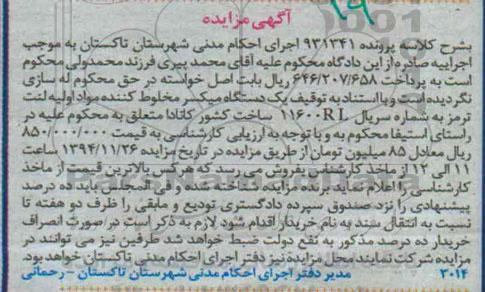 ۱۹
آگهی مزایده
بشرح کلاسه پرونده ۹۳۱۳۴۱ اجرای احکام مدنی شهرستان تاکستان به موجب
اجراییه صادره از این دادگاه محکوم علیه آقای محمد پیری فرزند محمدولی محکوم
است به پرداخت ۶۴۶/۲۰۷/۶۵۸ ریال بابت اصل خواسته در حق محکوم له سازی
نگردیده است و با استناد به توقیف یک دستگاه میکسر مخلوط کننده مواد اولیه لنت
ترمز به شماره سریال ۱۱۶۰۰RL ساخت کشور کانادا متعلق به محکوم علیه در
راستای استیفا محکوم به و با توجه به ارزیابی کارشناسی به قیمت ۸۵۰/۰۰۰/۰۰۰
ریال معادل ۸۵ میلیون تومان از طریق مزایده در تاریخ مزایده ۱۳۹۴/۱۱/۲۶ ساعت
۱۱ الی ۱۲ از ماخذ کارشناس بفروش می رسد که هر کس بالاترین قیمت از ماخذ
کارشناسی را اعلام نماید برنده مزایده شناخته شده و فی المجلس باید ده درصد
پیشنهادی را نزد صندوق سپرده دادگستری تودیع و مابقی را ظرف دو هفته تا
نسبت به انتقال سند به نام خریدار اقدام شود لازم به ذکر است در صورت انصراف
خریدار ده درصد مذکور به نفع دولت ضبط خواهد شد طرفین نیز می توانند در
مزایده شرکت نمایند محل مزایده نیز دفتر اجرای احکام مدنی تاکستان خواهد بود.
۲۰۱۴ مدیر دفتر اجرای احکام مدنی شهرستان تاکستان - رحمانی